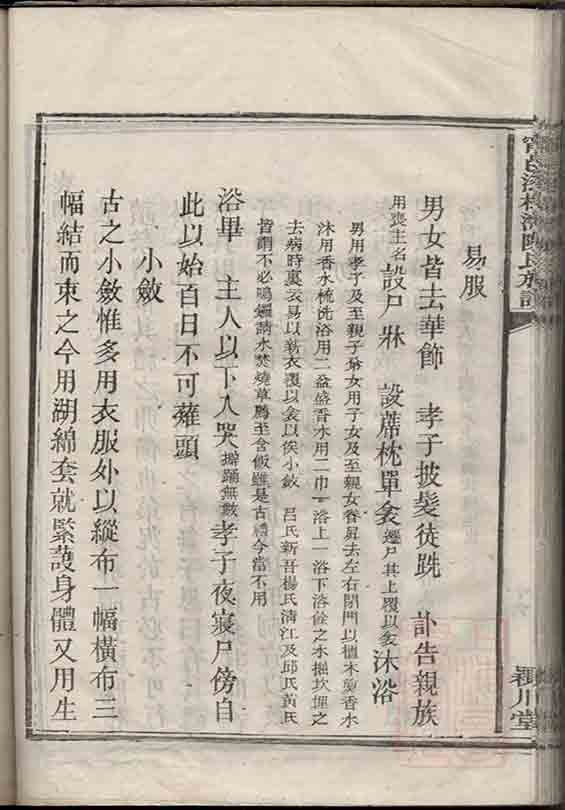 易服
男女皆去華飾 孝子披髮徒跣 訃告親族
用喪主名 設尸牀 設蓆枕單衾 遷尸其上覆以衾 沐浴
男用孝子及至親子弟女用子女及至親女眷昇去左右閉門以檀木煑香水
沐用香水梳洗浴用二盆盛香水用二巾一浴上一浴下浴餘之水掘坎埋之
去病時裏衣易以新衣覆以衾以俟小斂 呂氏新吾楊氏淸江及邱氏黃氏
皆謂不必鳴鑼請水焚燒草鵬至含飯雖是古禮今當不用
浴畢 主人以下入哭 擗踊無數 孝子夜寢尸傍自
此以始百日不可薙頭
小斂
古之小斂惟多用衣服外以縱布一幅橫布三
幅結而束之今用湖綿套就緊護身體又用生
氏族
潁川堂